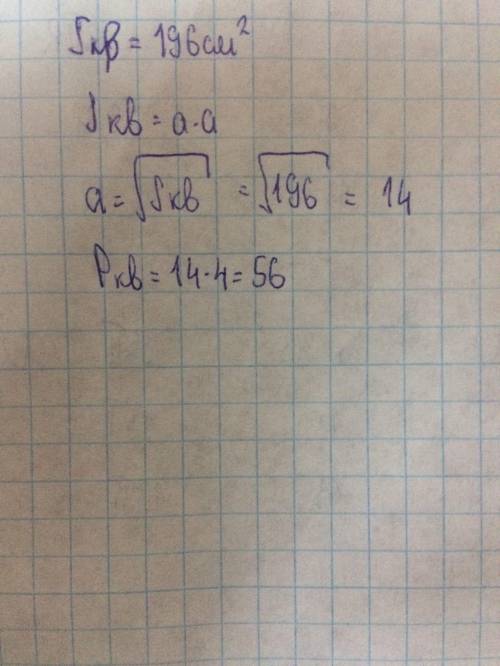 Sкв = 196 см²
Sкв = a·a
a = √Sкв = √196 = 14
Pкв = 14·4 = 56